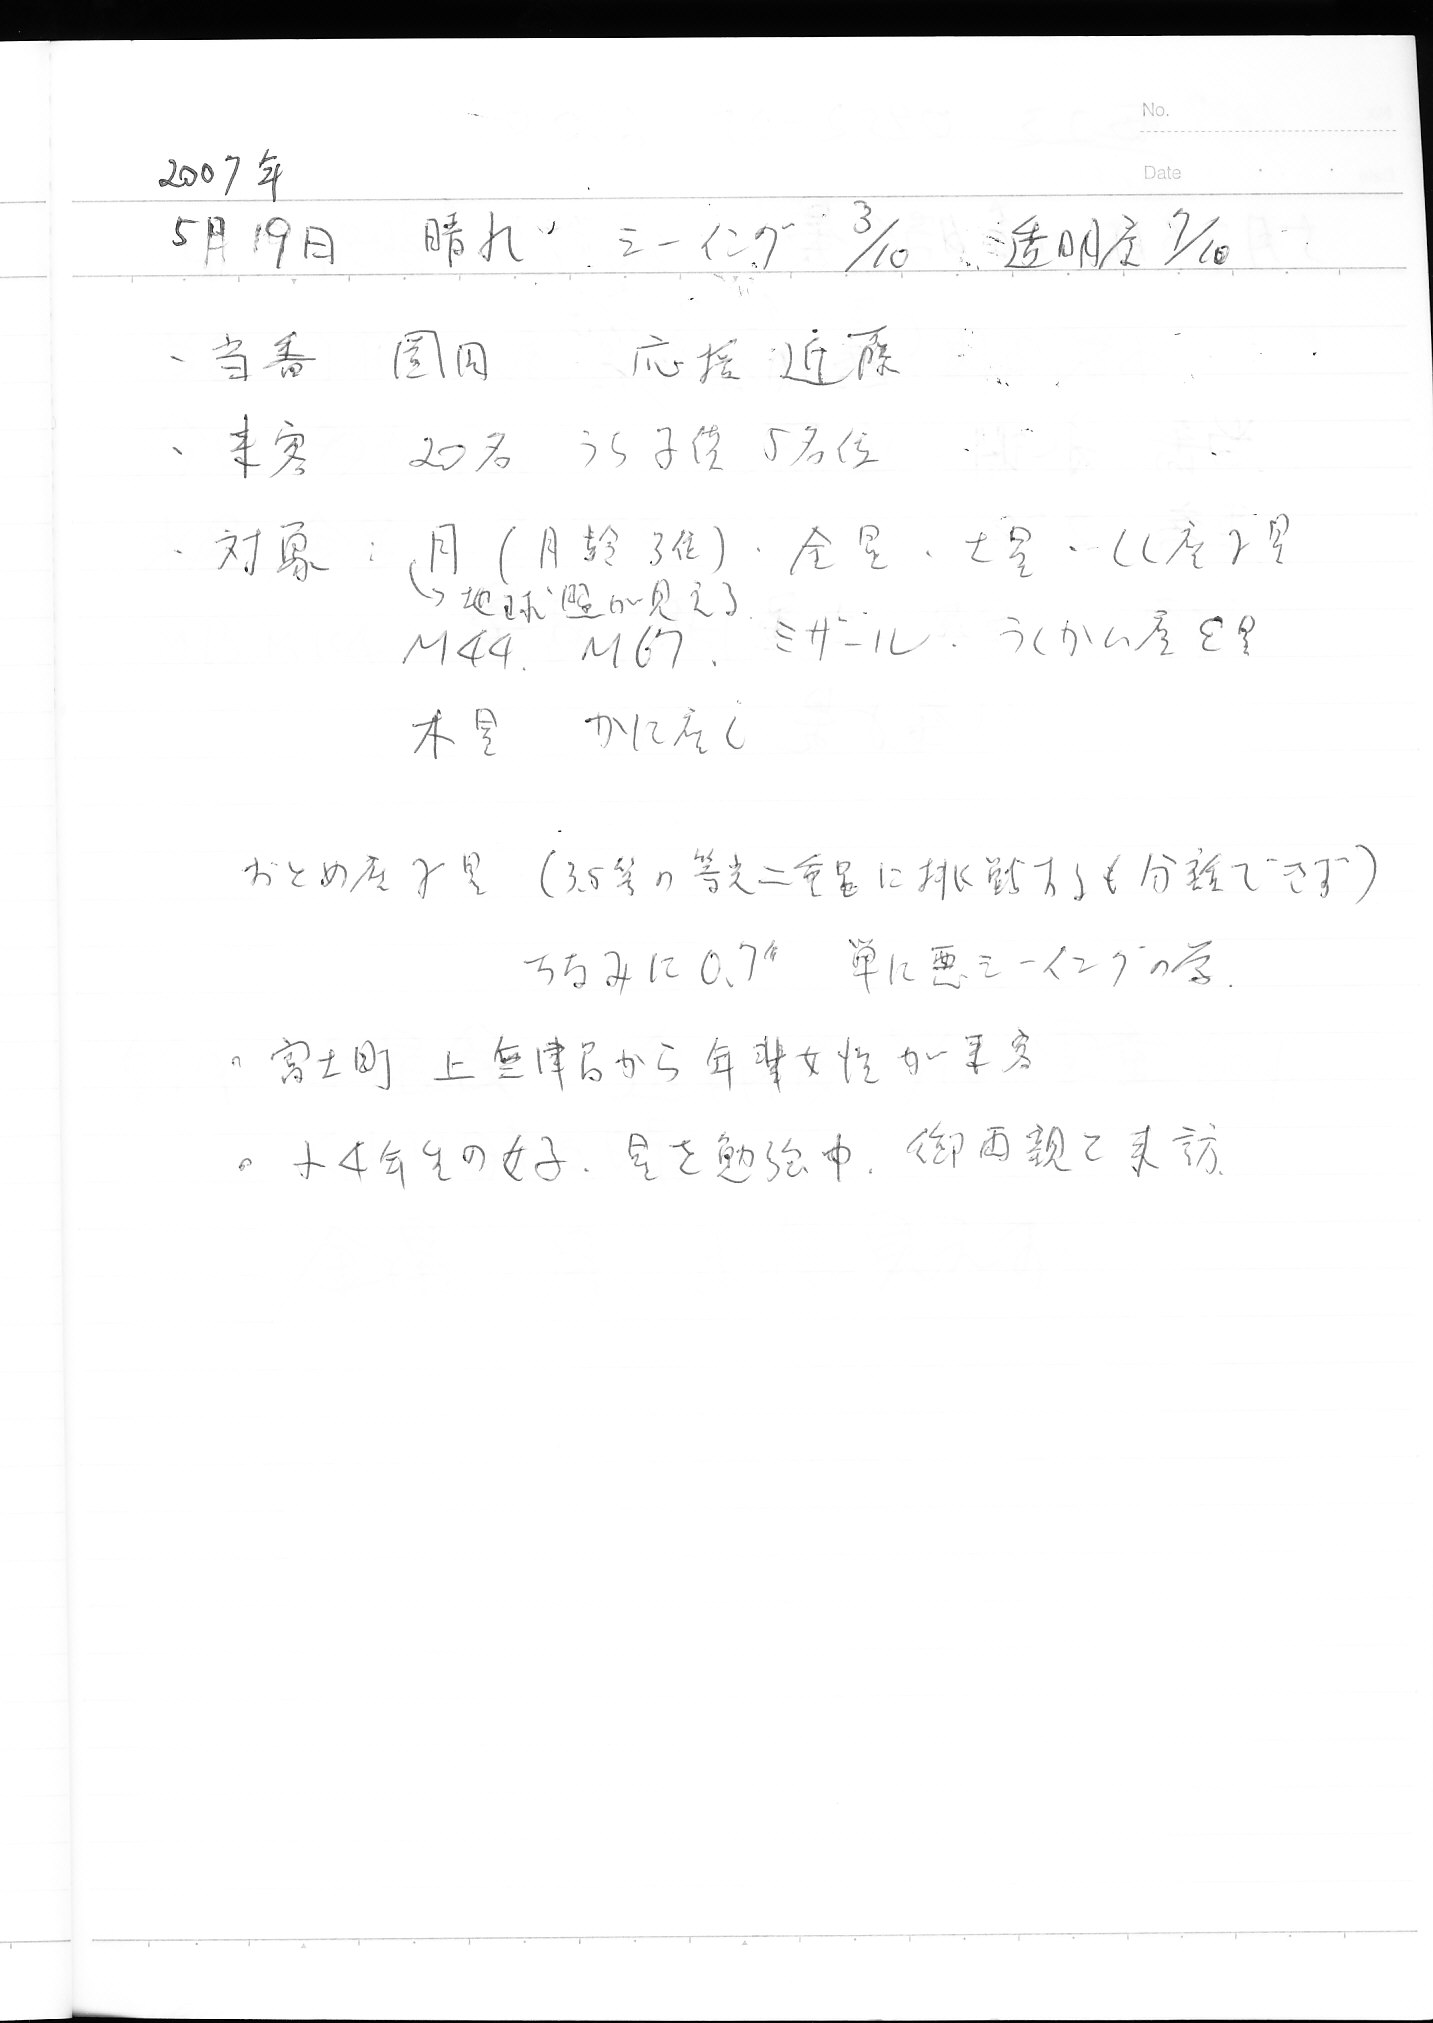 No.
Date
2007年
5月19日 晴れ シーイング 3/10 透明度 7/10
・当番 園田 応援 近藤
・来客 20名 うち子供 5名位
・対象：月(月齢3位)・金星・土星・しし座γ星
↳地球照が見える
M44. M67. ミザール. うしかい座ε星
木星 かに座ι
おとめ座γ星 (3.5等の等光二重星に挑戦するも分離できず)
ちなみに0.7″ 単に悪シーイングの為.
・富士町 上無津呂から年輩女性が来客
・小4年生の女子. 星を勉強中. 御両親と来訪.